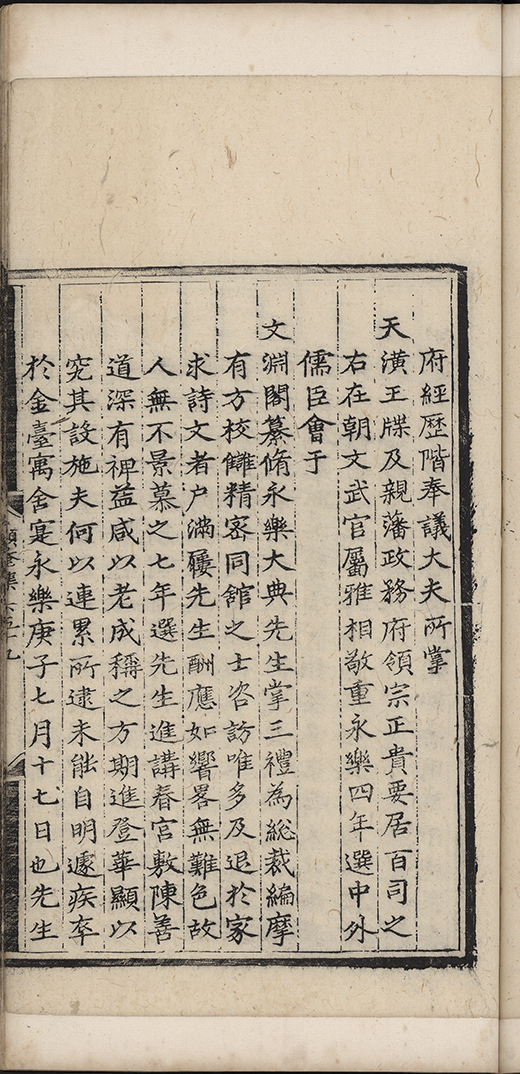 府經歷階奉議大夫所掌
天潢王牒及親藩政務府領宗正貴要居百司之
右在朝文武官屬雅相敬重永樂四年選中外
儒臣會于
文淵閣纂脩永樂大典先生掌三禮為総裁編摩
有方校讎精密同舘之士咨訪唯多及退於家
求詩文者户滿屨先生酬應如響畧無難色故
人無不景慕之七年選先生進講春宮敷陳善
道深有裨益咸以老成稱之方期進登華顯以
究其設施夫何以連累所逮未能自明遽疾卒
於金臺寓舍寔永樂庚子七月十七日也先生